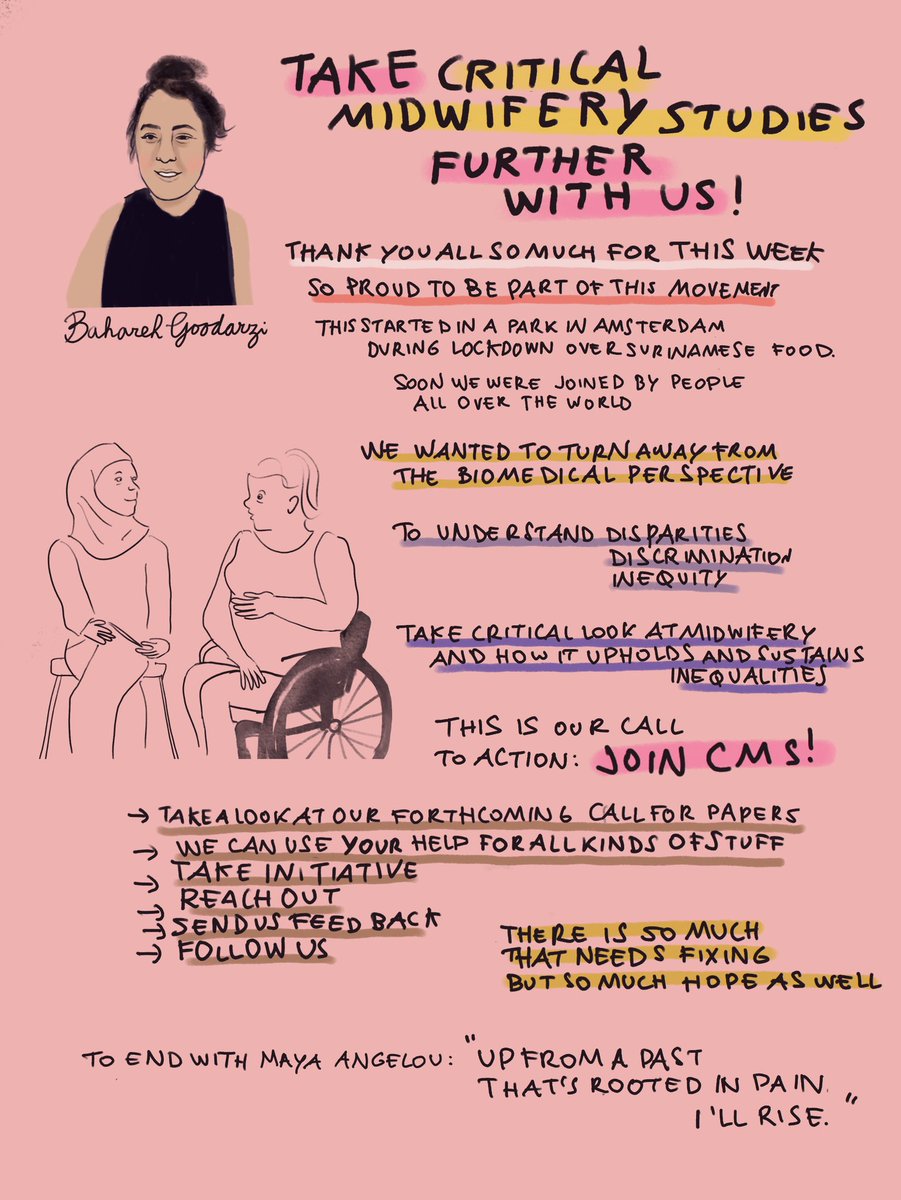 TAKE CRITICAL
MIDWIFERY STUDIES
FURTHER
WITH US!
Bahareh Goodarzi
THANK YOU ALL SO MUCH FOR THIS WEEK
SO PROUD TO BE PART OF THIS MOVEMENT
THIS STARTED IN A PARK IN AMSTERDAM
DURING LOCKDOWN OVER SURINAMESE FOOD.
SOON WE WERE JOINED BY PEOPLE
ALL OVER THE WORLD
WE WANTED TO TURN AWAY FROM
THE BIOMEDICAL PERSPECTIVE
TO UNDERSTAND DISPARITIES
DISCRIMINATION
INEQUITY
TAKE CRITICAL LOOK AT MIDWIFERY
AND HOW IT UPHOLDS AND SUSTAINS
INEQUALITIES
THIS IS OUR CALL
TO ACTION: JOIN CMS!
→ TAKE A LOOK AT OUR FORTHCOMING CALL FOR PAPERS
→ WE CAN USE YOUR HELP FOR ALL KINDS OF STUFF
→ TAKE INITIATIVE
→ REACH OUT
→ SEND US FEED BACK
→ FOLLOW US
THERE IS SO MUCH
THAT NEEDS FIXING
BUT SO MUCH HOPE AS WELL
TO END WITH MAYA ANGELOU: "UP FROM A PAST
THAT'S ROOTED IN PAIN.
I'LL RISE."